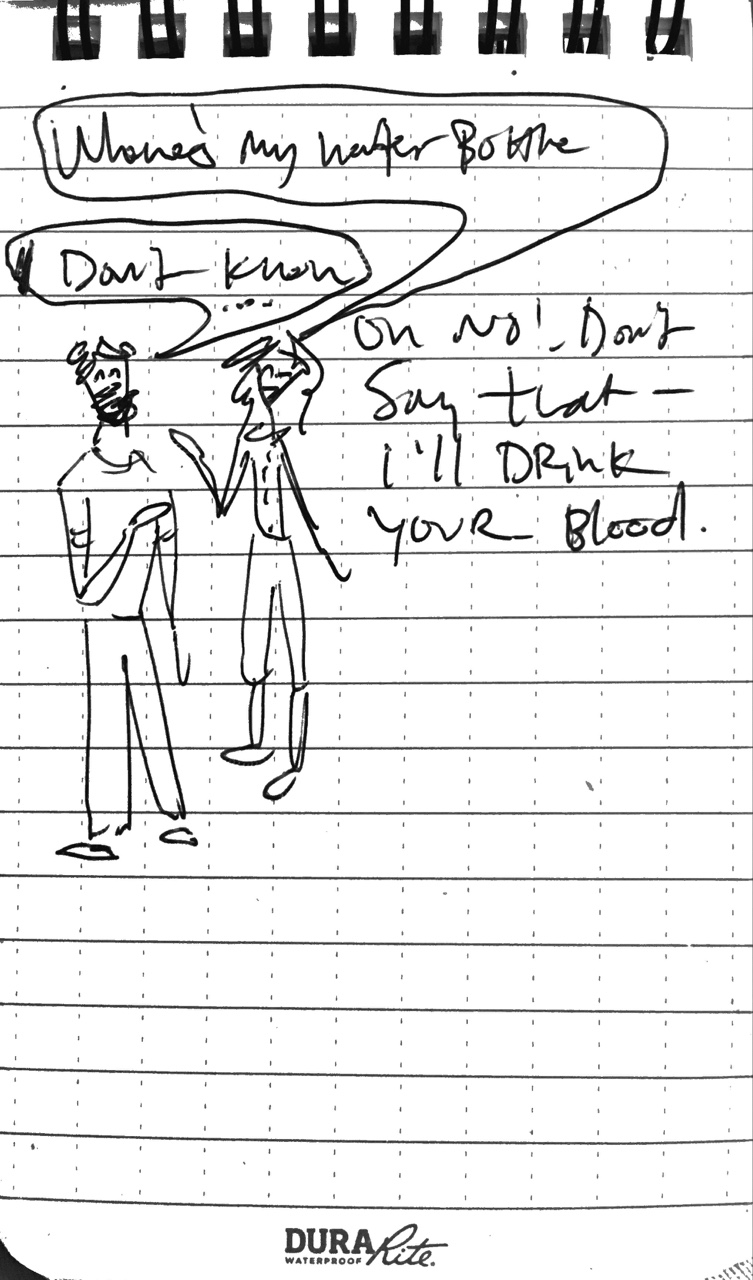 Where's my water Bottle
Don't know
....
Oh No! Don't
Say that –
I'll DRink
YOUR Blood.
DURARite.
WATERPROOF